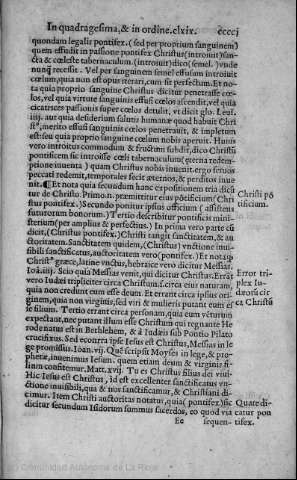 In quadragesima, & in ordine. clxix. ccccj
quondam legalis pontifex. (sed per proprium sanguinem)
quem effudit in passione pontifex Christus (introiuit) san-
cta & cœleste tabernaculum. (introiuit) dico (semel.) vnde
nunq̃ recessit. Vel per sanguinem semel effusum introiuit
cœlum, quia non est opus iterari, cum sit perfectum. Et no-
ta quia proprio sanguine Christus dicitur penetrasse cœ-
los, vel quia virtute sanguinis effusi cœlos ascendit, vel quia
cicatrices passionis super cœlos detulit, vt dicit glo. Leui.
iiij. aut quia desiderium salutis humanæ quod habuit Chri
merito effusi sanguinis cœlum penetrauit, & impletum
est: seu quia proprio sanguine cœlum nobis aperuit. Huius
vero introitus commodum & fructum subdit, dico Christū
pontificem sic introisse cœli tabernaculum (æterna redem-
ptione inuenta) quam Christus nobis inuenit. ergo seruos
peccati redemit, temporales fecit æternos, & perditos inue
nit. ¶ Et nota quia secundum hanc expositionem tria dicū
tur de Christo. Primo.n. præmittitur eius pōtificium (Chri
stus pontifex.) Secundo ponitur ipsius officium (assistens
futurorum bonorum.) Tertio describitur pontificis mini-
sterium (per amplius & perfectius.) In prima vero parte cū
dicit, (Christus pontifex.) Christi tangit sanctitatem, & au
ctoritatem. Sanctitatem quidem, (Christus) vnctione inui-
sibili sanctificatus, auctoritatem vero (pontifex.) Et notaqꝫ
græce, latine vnctus, hebraice vero dicitur Messias.
Ioā. iiij. Scio quia Messias venit, qui dicitur Christus. Errāt
vero Iudæi tripliciter circa Christum. s. circa eius naturam,
quia non credunt eum esse deum. Et errant circa ipsius ori-
ginem, quia non virginis, sed viri & mulieris putant eum es
se filium. Tertio errant circa personam, quia eum vēturum
expectant, nec putant illum esse Christum qui regnante He
rode natus est in Bethlehem, & à Iudæis sub Pontio Pilato
crucifixus. Sed econtra ipse Iesus est Christus, Messias in le
ge promissus. Ioan. vij. Quē scripsit Moyses in lege, & pro-
phetæ, inuenimus Iesum. quem etiam deum & virginis fi-
lium confitemur. Matt. xvij. Tu es Christus filius dei viui.
Hic Iesus est Christus, id est excellenter sanctificatus vn-
ctione inuisibili, quia & nos sanctificati, & Christiani di-
cimur. Item Christi auctoritas notatur, quia (pontifex) sic
dicitur secundum Isidorum summus sacerdos, eo quod via
Ee sequen-
Christi pō
tificium.
Error tri
plex Iu-
dæorū cir
ca Christū
Quare di-
catur pon
tifex.
Comunidad Autónoma de La Rioja